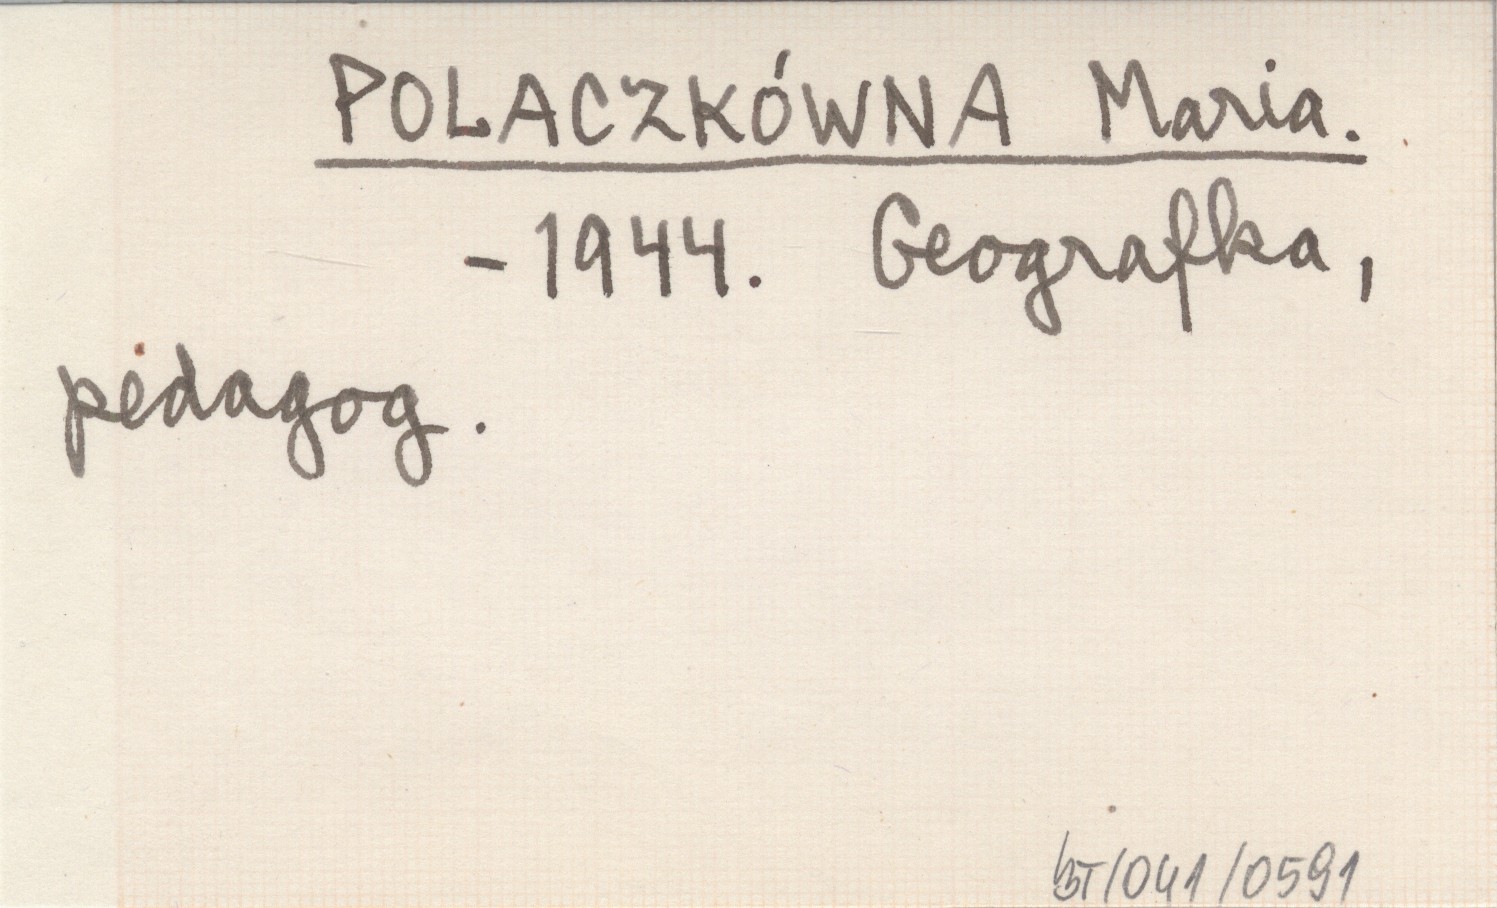 POLACZKÓWNA Maria.
-1944. Geografka,
pedagog.
BT/041/0591